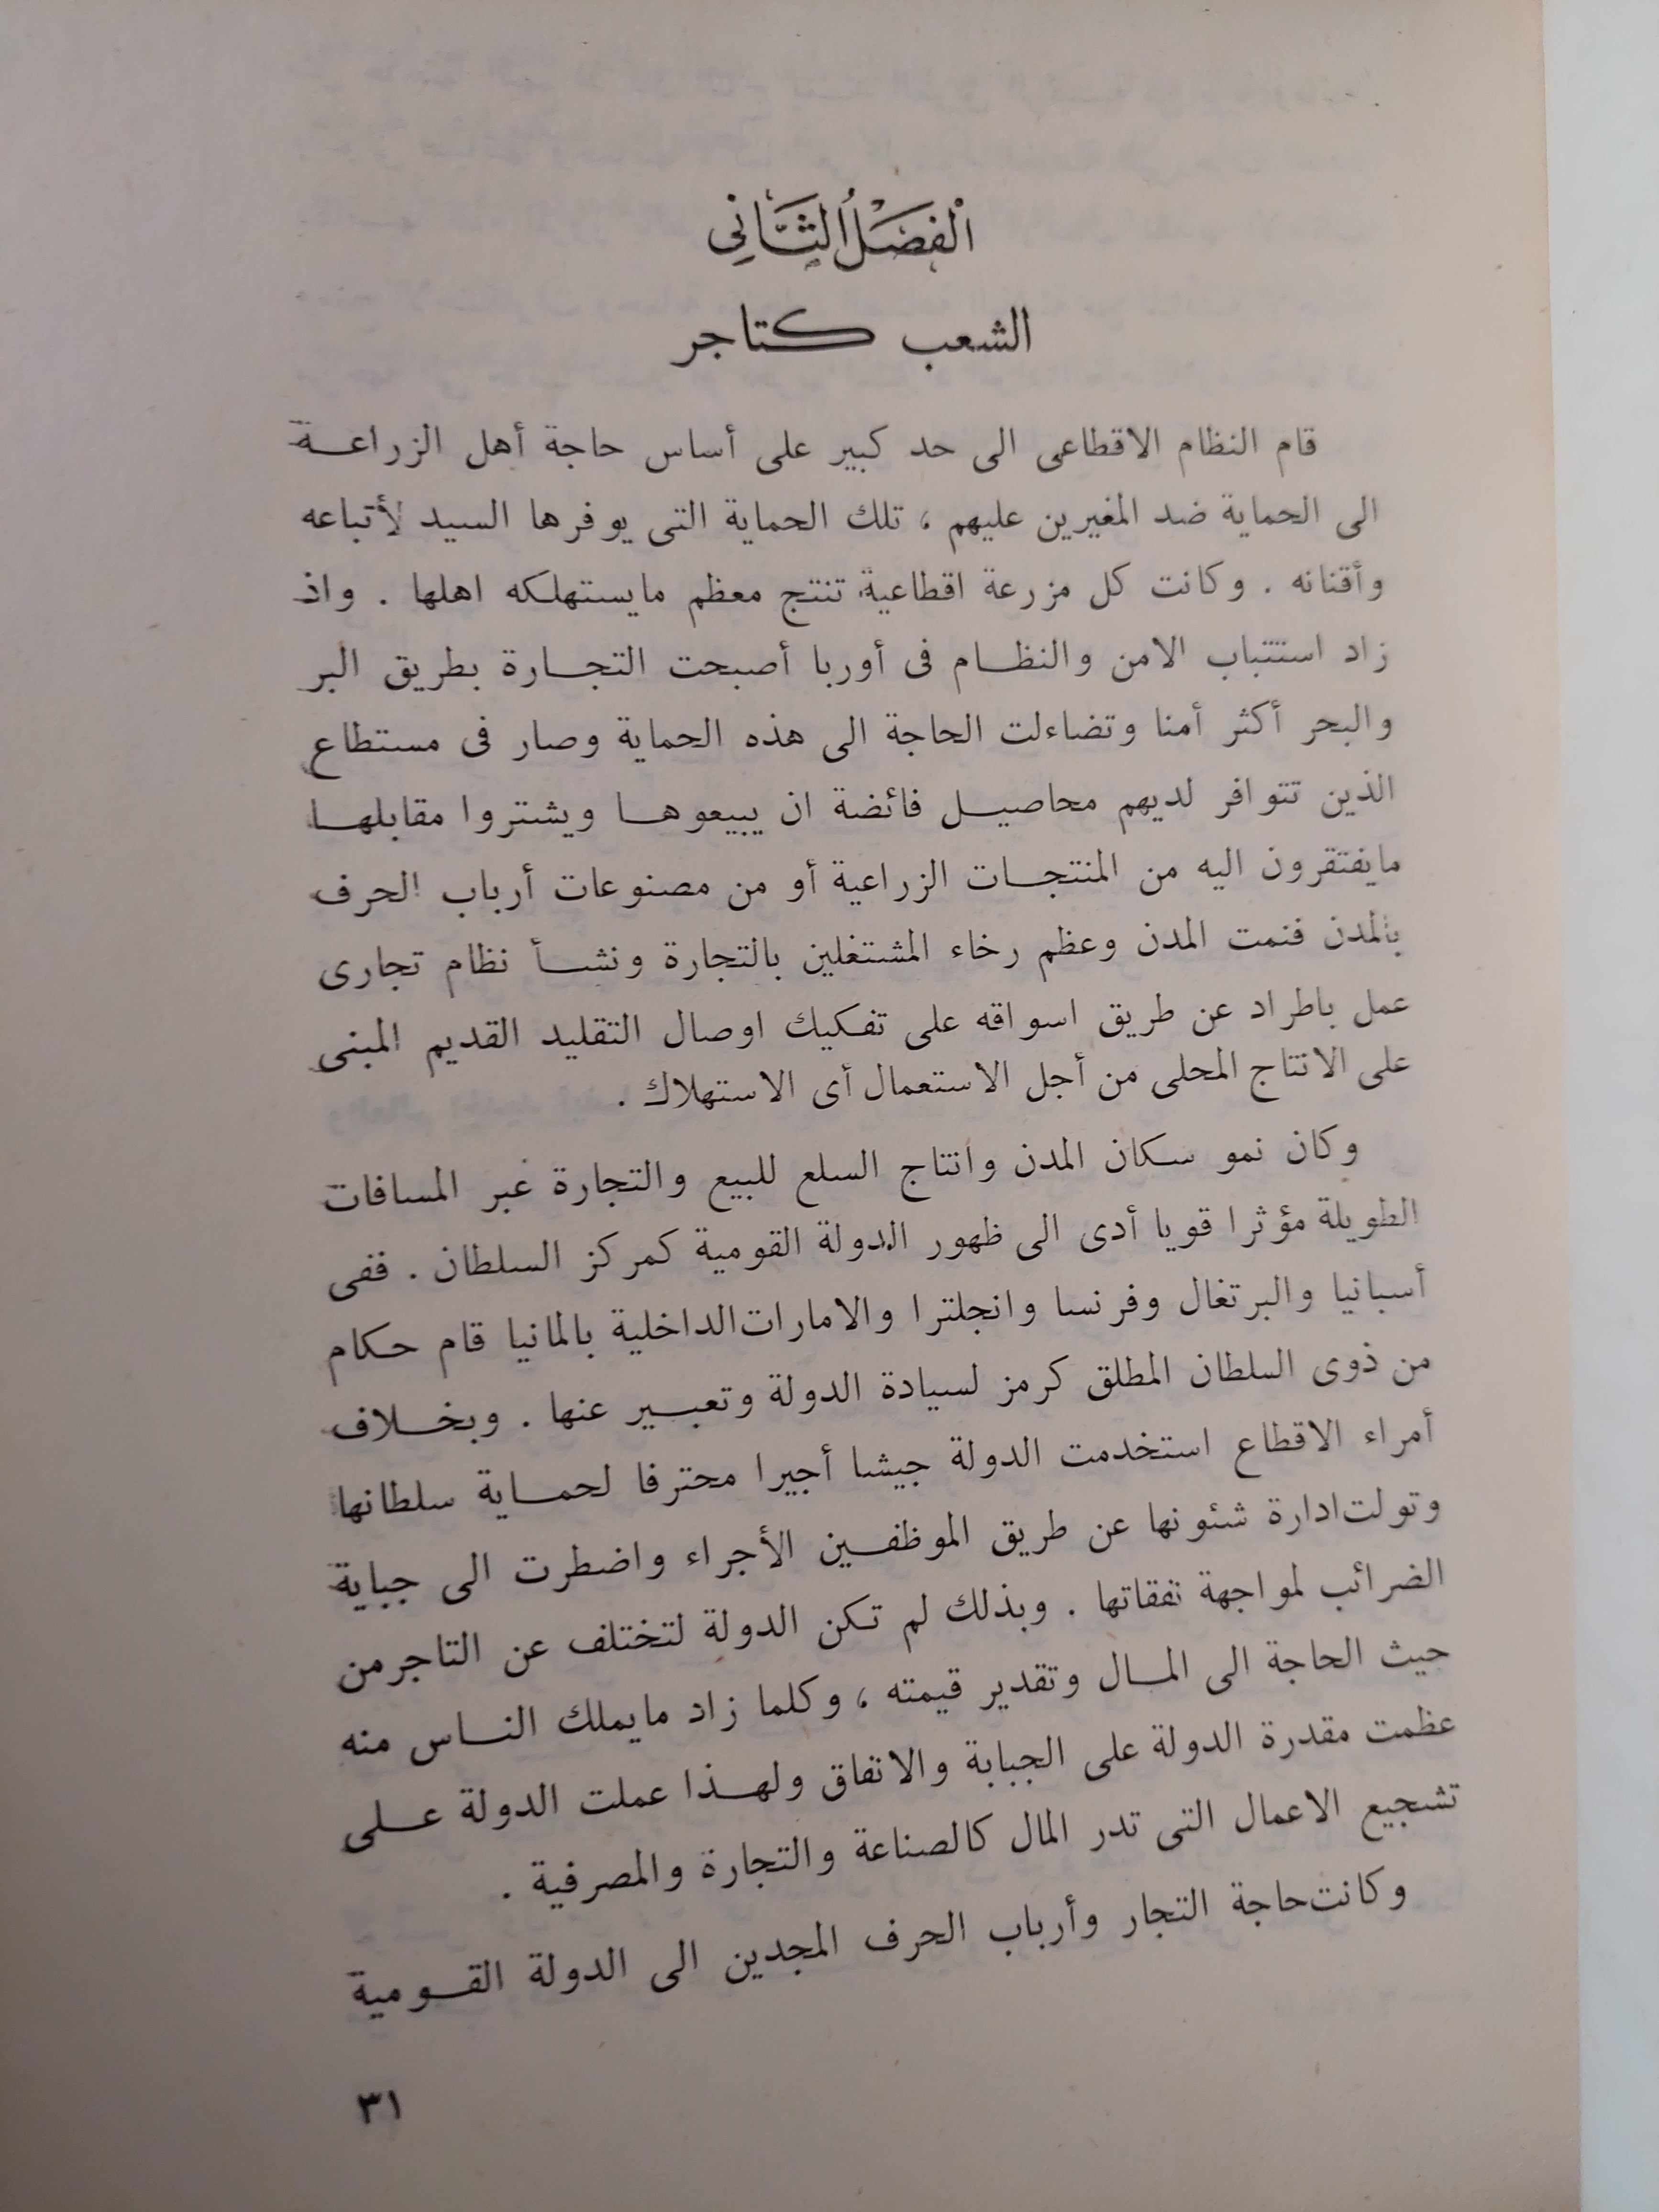 الفصل الثاني
الشعب كتاجر
قام النظام الاقطاعى الى حد كبير على أساس حاجة أهل الزراعة
الى الحماية ضد المغيرين عليهم ، تلك الحماية التى يوفرها السيد لأتباعه
وأقنانه . وكانت كل مزرعة اقطاعية تنتج معظم مايستهلكه اهلها . واذ
زاد استتباب الامن والنظام فى أوربا أصبحت التجارة بطريق البر
والبحر أكثر أمنا وتضاءلت الحاجة الى هذه الحماية وصار فى مستطاع
الذين تتوافر لديهم محاصيل فائضة ان يبيعوها ويشتروا مقابلها
مايفتقرون اليه من المنتجات الزراعية أو من مصنوعات أرباب الحرف
بالمدن فنمت المدن وعظم رخاء المشتغلين بالتجارة ونشأ نظام تجارى
عمل باطراد عن طريق اسواقه على تفكيك اوصال التقليد القديم المبنى
على الانتاج المحلى من أجل الاستعمال أى الاستهلاك .
وكان نمو سكان المدن وانتاج السلع للبيع والتجارة عبر المسافات
الطويلة مؤثرا قويا أدى الى ظهور الدولة القومية كمركز السلطان . ففى
أسبانيا والبرتغال وفرنسا وانجلترا والامارات الداخلية بالمانيا قام حكام
من ذوى السلطان المطلق كرمز لسيادة الدولة وتعبير عنها . وبخلاف
أمراء الاقطاع استخدمت الدولة جيشا أجيرا محترفا لحماية سلطانها
وتولت ادارة شئونها عن طريق الموظفين الأجراء واضطرت الى جباية
الضرائب لمواجهة نفقاتها . وبذلك لم تكن الدولة لتختلف عن التاجر من
حيث الحاجة الى المال وتقدير قيمته ، وكلما زاد مايملك الناس منه
عظمت مقدرة الدولة على الجباية والانفاق ولهذا عملت الدولة على
تشجيع الاعمال التى تدر المال كالصناعة والتجارة والمصرفية .
وكانت حاجة التجار وأرباب الحرف المجدين الى الدولة القومية
٣١